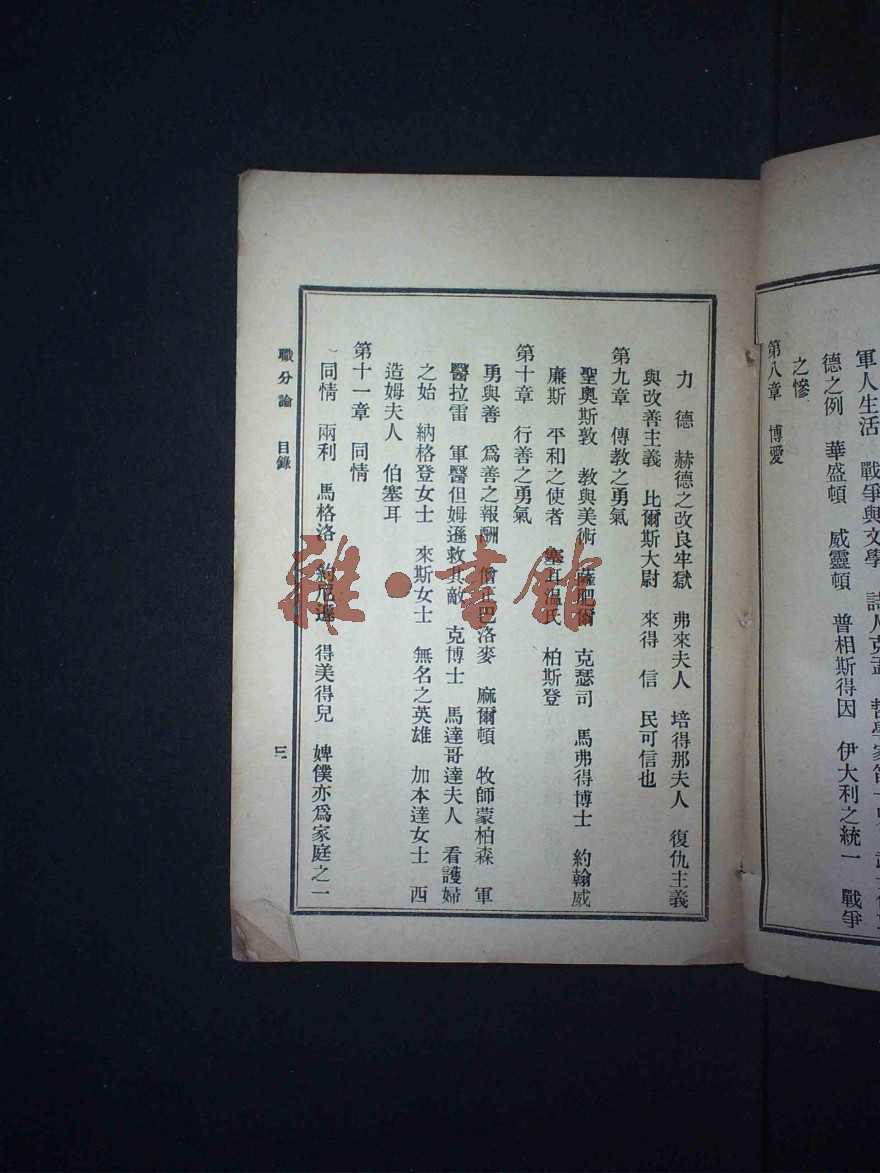 軍人生活 戰爭與文學 詩人克
德之例 華盛頓 威靈頓 普相斯得因 伊大利之統一 戰爭
之慘
第八章 博愛
力 德 赫德之改良牢獄 弗來夫人 培得那夫人 復仇主義
與改善主義 比爾斯大尉 來得 信 民可信也
第九章 傳教之勇氣
聖奧斯敦 教與美術 薩肥爾 克瑟司 馬弗得博士 約翰威
廉斯 平和之使者 塞耳温氏 柏斯登
第十章 行善之勇氣
勇與善 爲善之報酬 僧正巴洛麥 麻爾頓 牧師蒙柏森 軍
醫拉雷 軍醫但姆遜救其敵 克博士 馬達哥達夫人 看護婦
之始 納格登女士 來斯女士 無名之英雄 加本達女士 西
造姆夫人 伯塞耳
第十一章 同情
同情 兩利 馬格洛 約尼遜 得美得兒 婢僕亦爲家庭之一
職分論 目錄 三
雜·書館